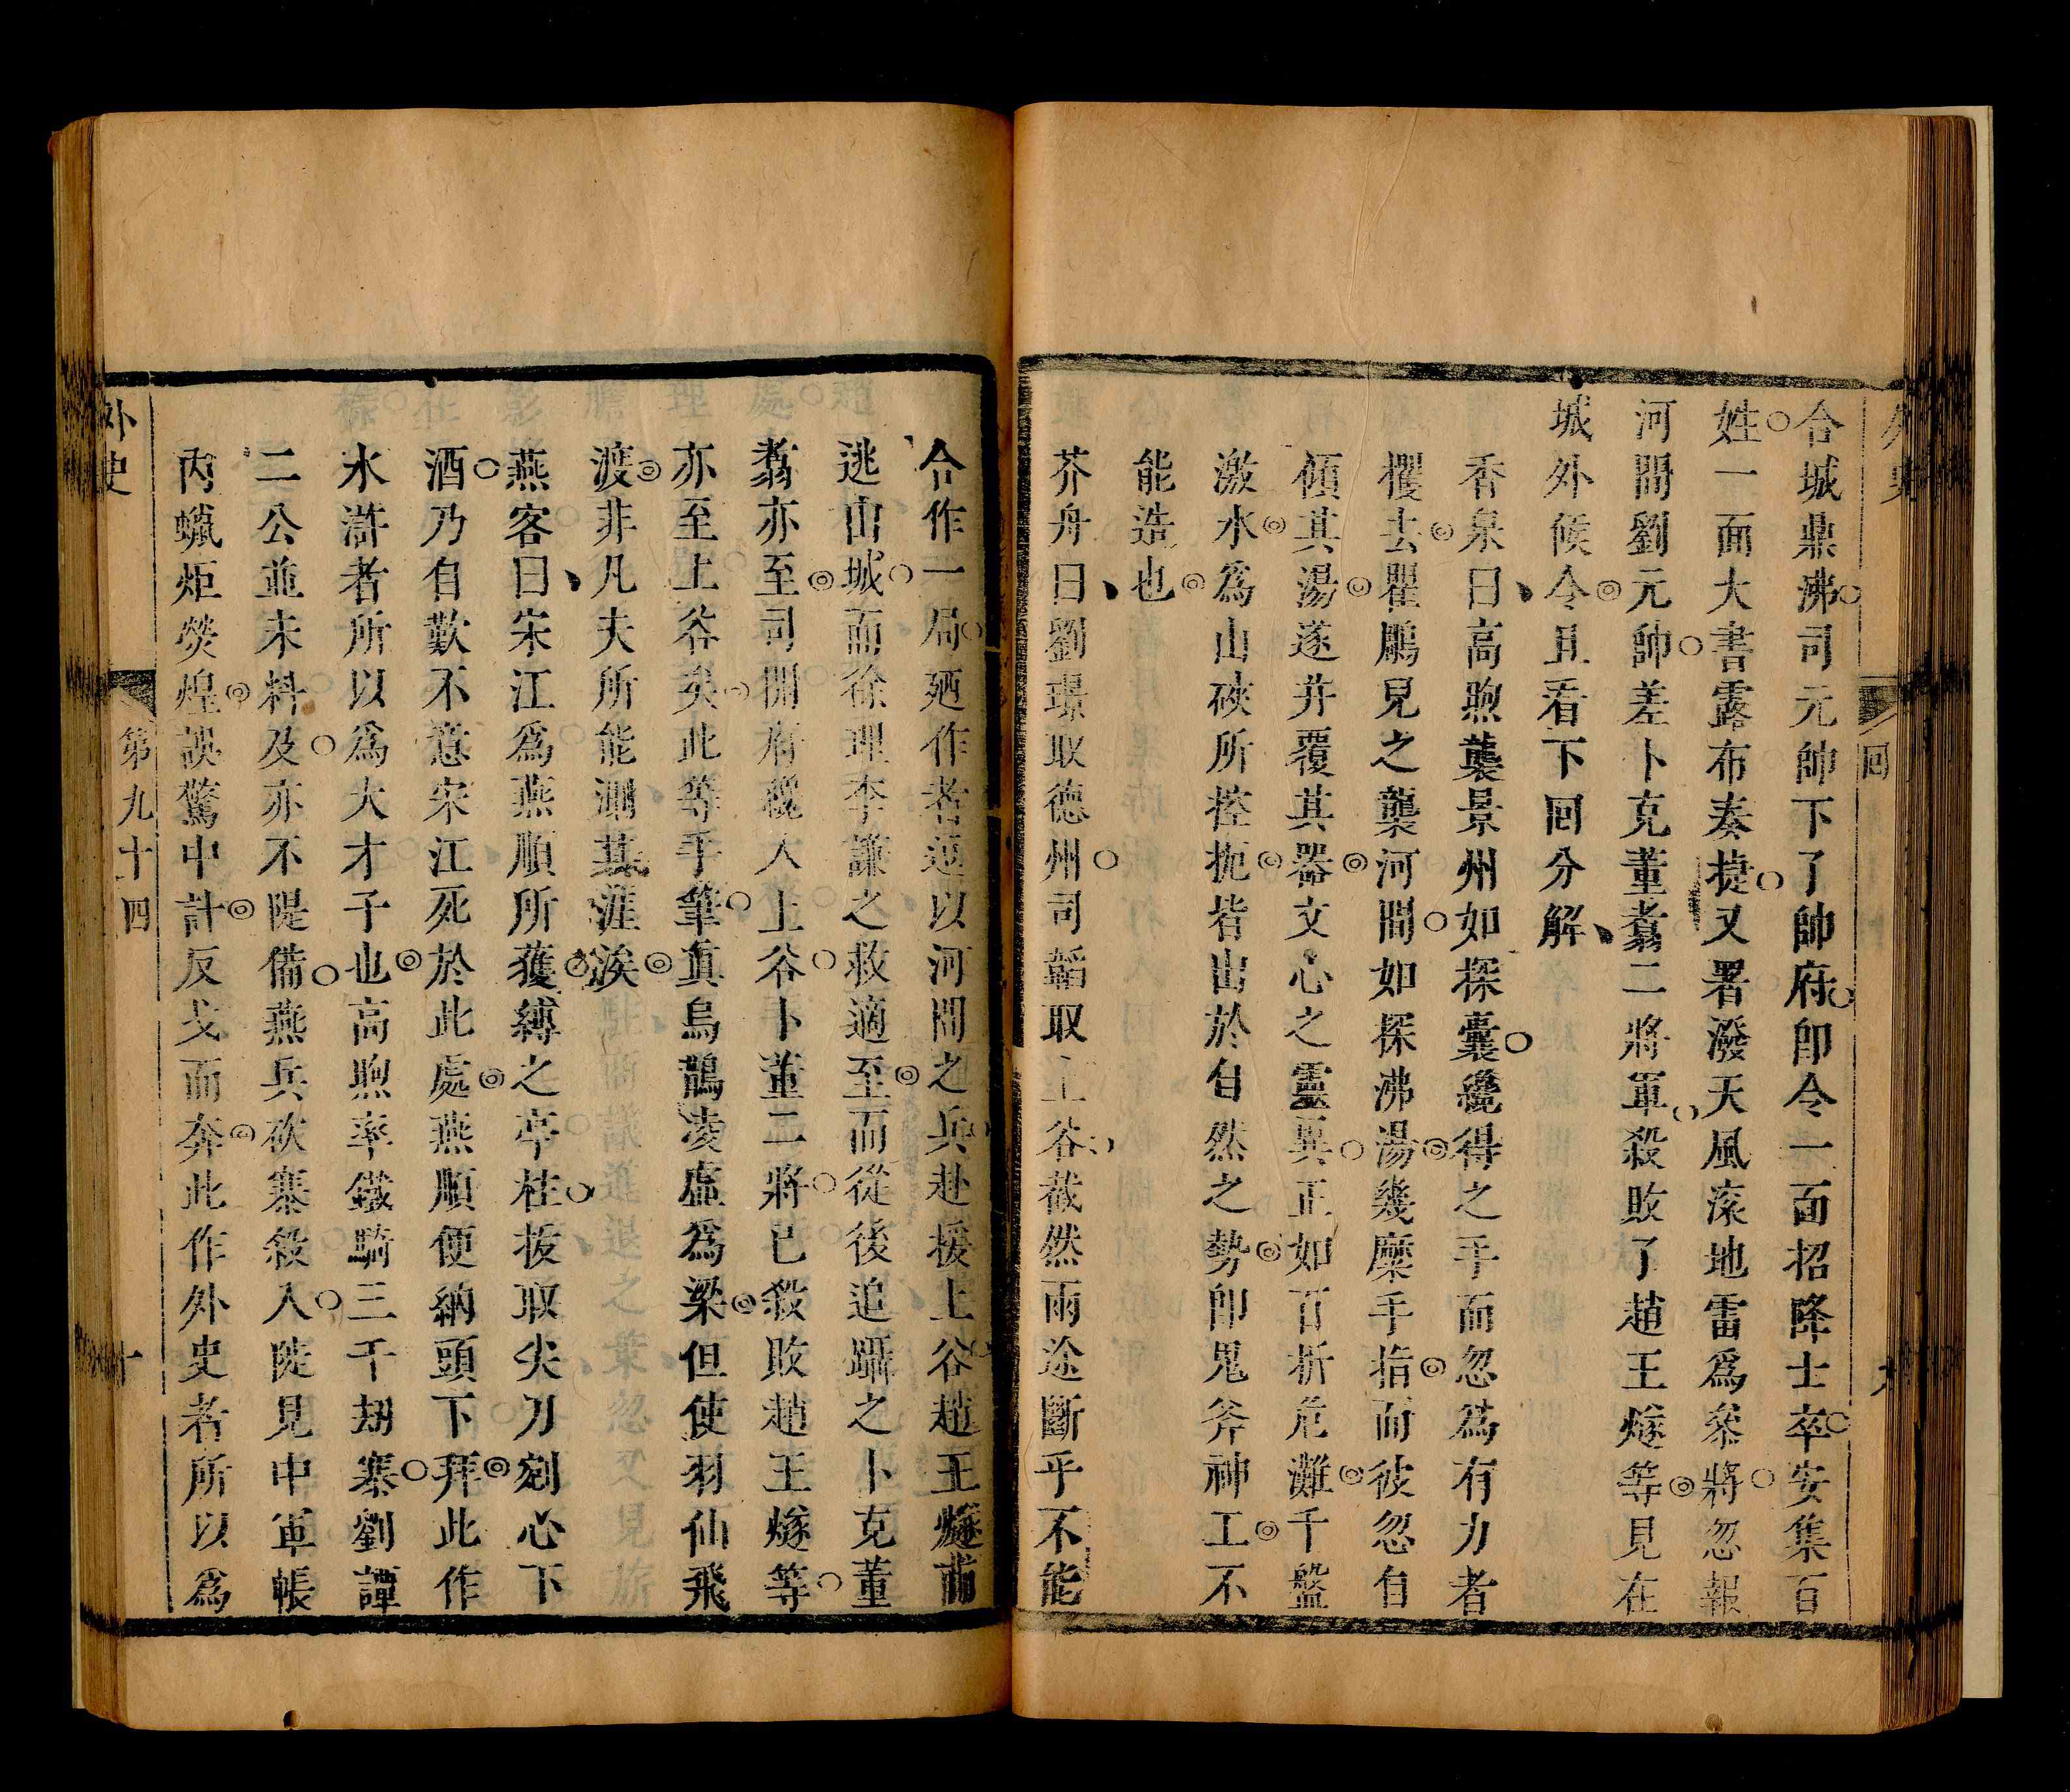 外史
回
九
合城鼎沸司元帥下了帥府卽令一面招降士卒安集百
姓一面大書露布奏捷又署潑天風滾地雷爲叅將忽報
河間劉元帥差卜克董翥二將軍殺敗了趙王燧等見在
城外候令且看下回分解
香泉曰高煦襲景州如探囊纔得之手而忽爲有力者
攫去瞿鵰兒之襲河間如探沸湯幾糜手指而彼忽自
傾其湯遂并覆其器文心之靈異正如百折危灘千盤
激水爲山硤所控扼皆出於自然之勢卽鬼斧神工不
能造也
芥舟曰劉璟取德州司韜取上谷截然兩途斷乎不能
合作一局廼作者逗以河間之兵赴援上谷趙王燧甫
逃山城而徐理李謙之救適至而從後追躡之卜克董
翥亦至司開府纔入上谷卜董二將已殺敗趙王燧等
亦至上谷矣此等手筆眞烏鵲凌虛爲梁但使羽仙飛
渡非凡夫所能測其涯涘
燕客曰宋江爲燕順所獲縛之亭柱拔取尖刀剜心下
酒乃自歎不意宋江死於此處燕順便納頭下拜此作
水滸者所以爲大才子也高煦率鐵騎三千刼寨劉譚
二公並未料及亦不隄備燕兵砍寨殺入陡見中軍帳
內蠟炬熒煌誤驚中計反戈而奔此作外史者所以爲
外史
第九十四
十